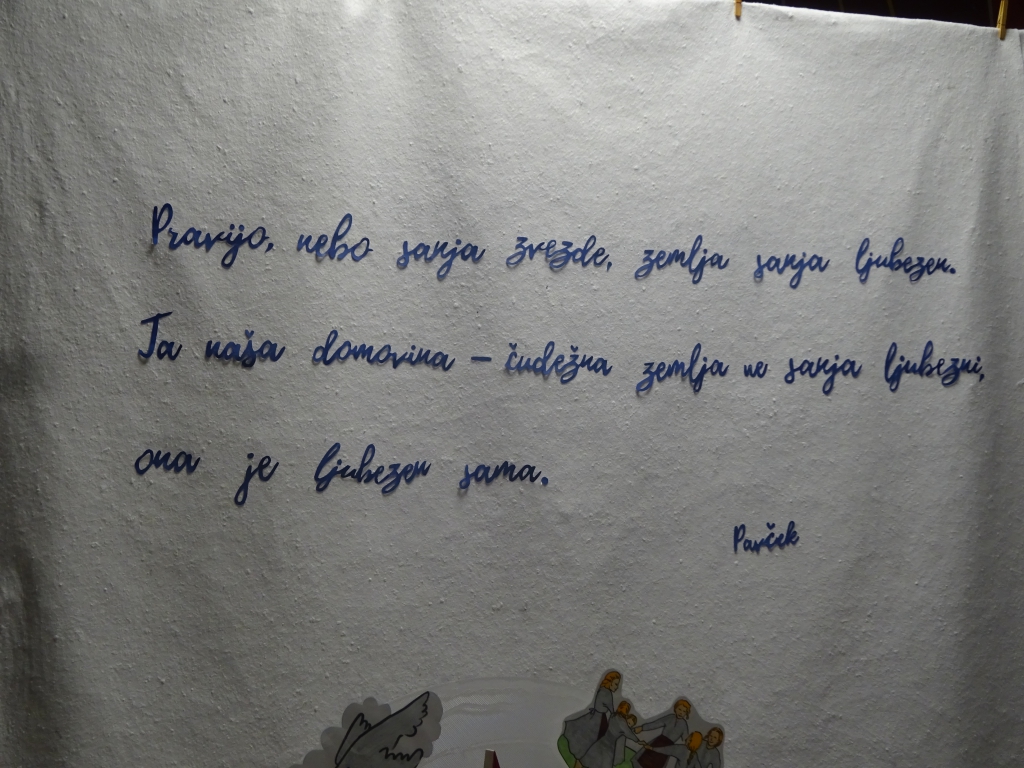 Pravijo, nebo sanja zvezde, zemlja sanja ljubezen.
Ta naša domovina – čudežna zemlja ne sanja ljubezni,
ona je ljubezen sama.
Pavček